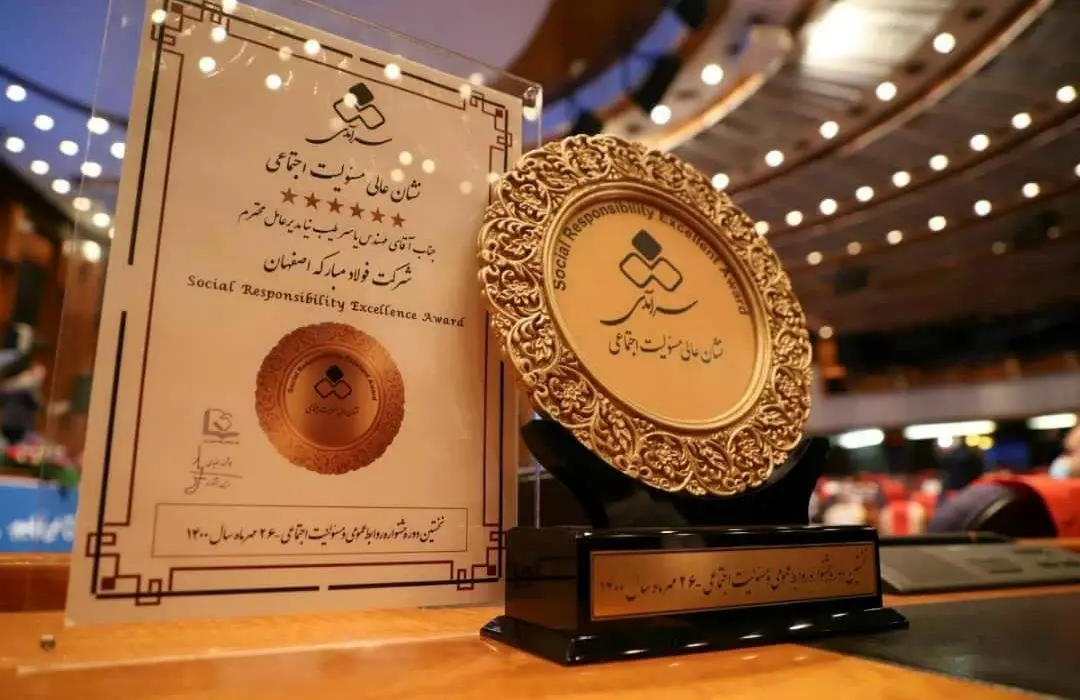 سرآمدی
نشان عالی مسئولیت اجتماعی
جناب آقای مهندس یاسر طیب نیا مدیرعامل محترم
شرکت فولاد مبارکه اصفهان
Social Responsibility Excellence Award
Social Responsibility Excellent Award
نشان عالی مسئولیت اجتماعی
نخستین دوره جشنواره روابط عمومی و مسئولیت اجتماعی - ۲۶ مهر ماه سال ۱۴۰۰
Social Responsibility Excellent Award
سرآمدی
نشان عالی مسئولیت اجتماعی
نخستین دوره جشنواره روابط عمومی و مسئولیت اجتماعی - ۲۶ مهر ماه سال ۱۴۰۰